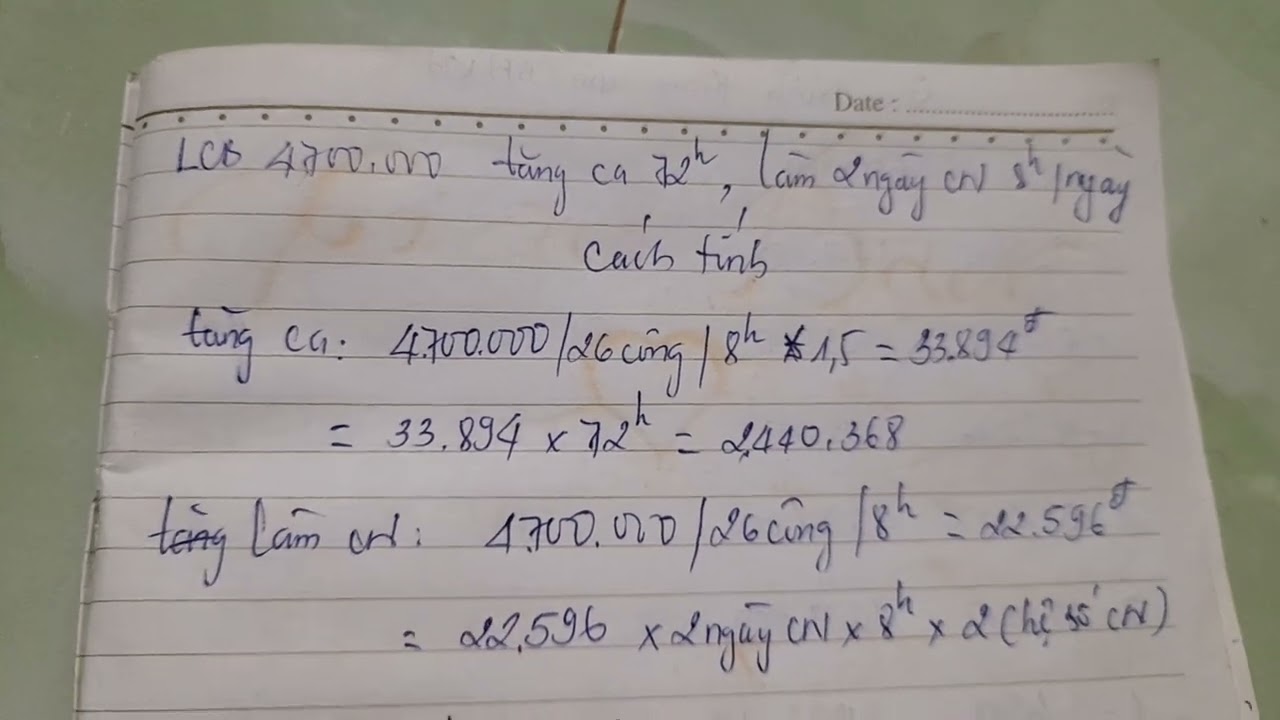 Date : ..............................
LCB 4.700.000 tăng ca 72h, làm 2 ngày CN 8h/ngày
Cách tính
tăng ca: 4.700.000/26 công/8h * 1,5 = 33.894đ
= 33.894 x 72h = 2.440.368
tăng làm CN: 4.700.000/26 công/8h = 22.596đ
= 22.596 x 2 ngày CN x 8h x 2 (hệ số CN)